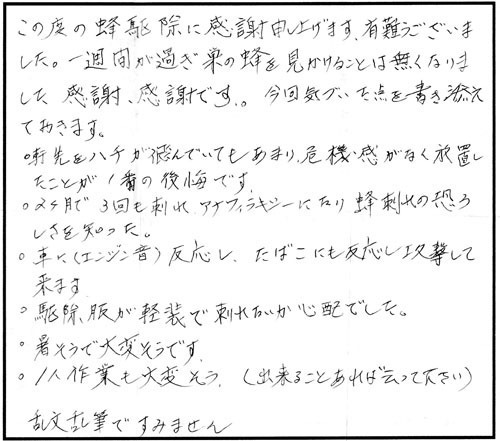 この度の蜂駆除に感謝申し上げます、有難うございま
した。一週間が過ぎ巣の蜂を見かけることは無くなりま
した 感謝、感謝です。。 今回気づいた点を書き添え
ておきます。
○軒先をハチが飛んでいてもあまり、危機感がなく放置し
たことが1番の後悔です
○2ヶ月で3回も刺れ、アナフィラキシーになり 蜂刺れの恐ろ
しさを知った。
○車に(エンジン音)反応し、たばこにも反応し攻撃して
来ます
○駆除服が軽装で刺れないか心配でした。
○暑そうで大変そうです、
○1人作業も大変そう、(出来ることあれば云って下さい)
乱文乱筆ですみません